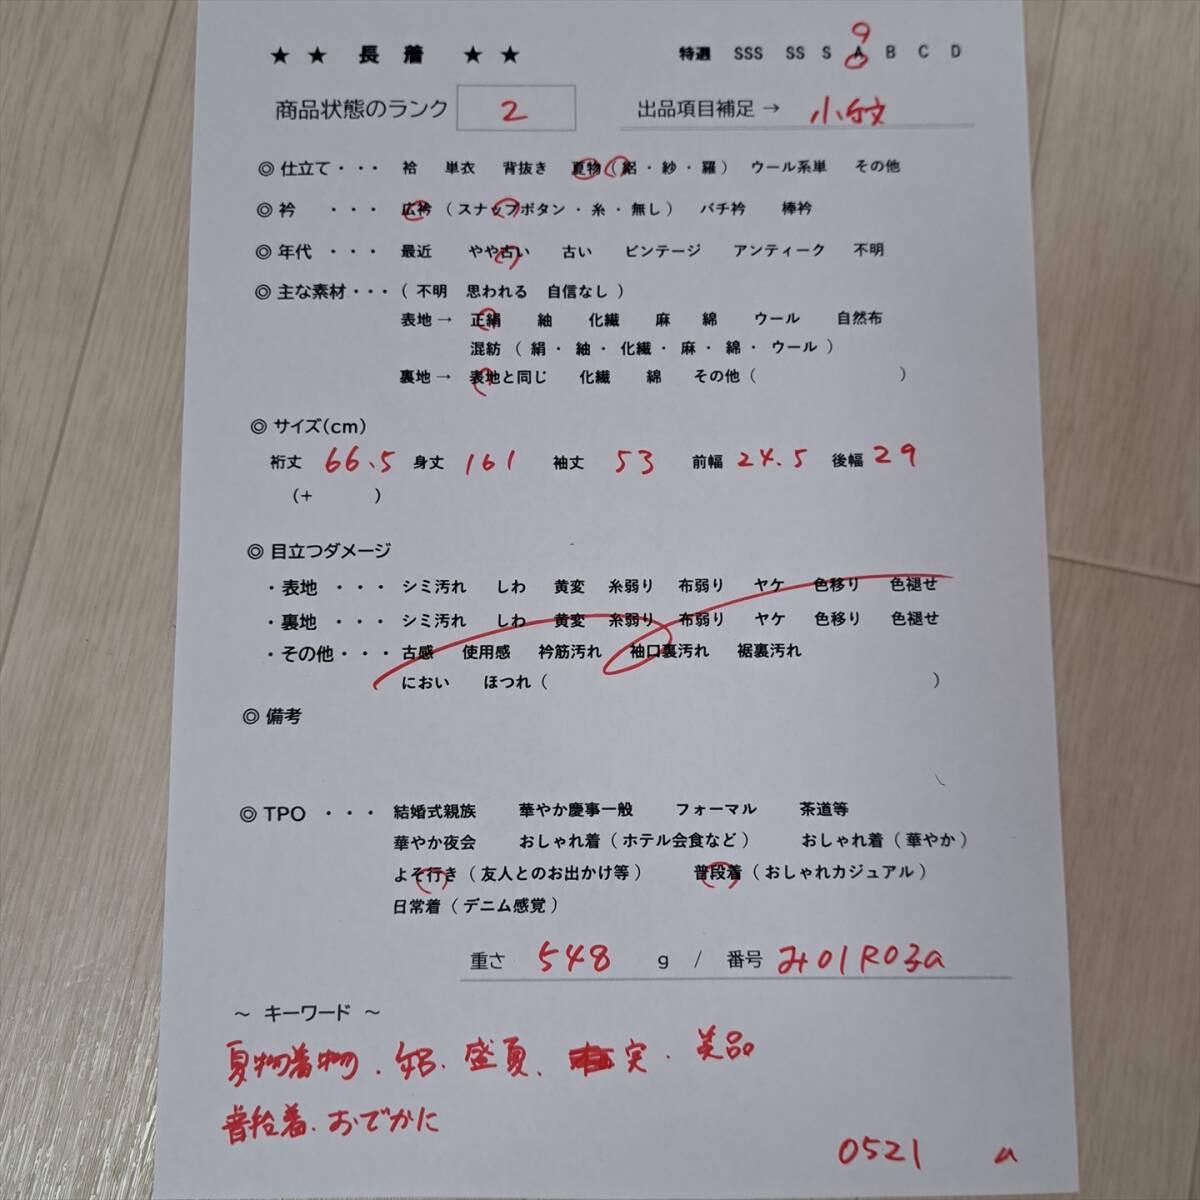 ★ ★ 長 着 ★ ★ 特選 SSS SS S A B C D
商品状態のランク 2 出品項目補足 → 小紋
◎ 仕立て・・・ 袷 単衣 背抜き 夏物 ( 絽 ・ 紗 ・ 羅 ) ウール系単 その他
◎ 衿 ・・・ 広衿 ( スナップボタン ・ 糸 ・ 無し ) バチ衿 棒衿
◎ 年代 ・・・ 最近 やや古い 古い ビンテージ アンティーク 不明
◎ 主な素材・・・ ( 不明 思われる 自信なし )
表地 → 正絹 紬 化繊 麻 綿 ウール 自然布
混紡 ( 絹 ・ 紬 ・ 化繊 ・ 麻 ・ 綿 ・ ウール )
裏地 → 表地と同じ 化繊 綿 その他 ( )
◎ サイズ(cm)
裄丈 66.5 身丈 161 袖丈 53 前幅 24.5 後幅 29
(+ )
◎ 目立つダメージ
・表地 ・・・ シミ汚れ しわ 黄変 糸弱り 布弱り ヤケ 色移り 色褪せ
・裏地 ・・・ シミ汚れ しわ 黄変 糸弱り 布弱り ヤケ 色移り 色褪せ
・その他・・・ 古感 使用感 衿筋汚れ 袖口裏汚れ 裾裏汚れ
におい ほつれ ( )
◎ 備考
◎ TPO ・・・ 結婚式親族 華やか慶事一般 フォーマル 茶道等
華やか夜会 おしゃれ着 ( ホテル会食など ) おしゃれ着 ( 華やか )
よそ行き ( 友人とのお出かけ等 ) 普段着 ( おしゃれカジュアル )
日常着 ( デニム感覚 )
重さ 548 g / 番号 み01R03a
～ キーワード ～
夏物着物 . 絽. 盛夏、 実. 美品
普段着. おでかに
0521